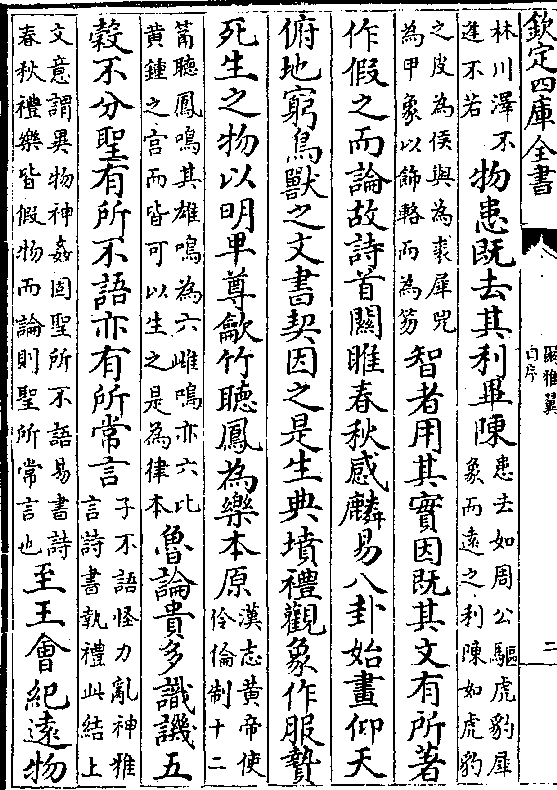 欽定四庫全書
爾雅翼
自序
二
林川澤不
逢不若
物患既去其利畢陳
患去如周公驅虎豹犀
象而遠之利陳如虎豹
之皮為侯與為裘犀兕
為甲象以飾輅而為笏
智者用其實因既其文有所著
作假之而論故詩首關雎春秋感麟易八卦始畫仰天
俯地窮鳥獸之文書契因之是生典墳禮觀象作服贄
死生之物以明卑尊龡竹聽鳳為樂本原
漢志黃帝使
伶倫制十二
筩聽鳳鳴其雄鳴為六雌鳴亦六比
黃鍾之宫而皆可以生之是為律本
魯論貴多識譏五
榖不分聖有所不語亦有所常言
子不語怪力亂神雅
言詩書執禮此結上
文意謂異物神姦固聖所不語易書詩
春秋禮樂皆假物而論則聖所常言也
至王會紀遠物